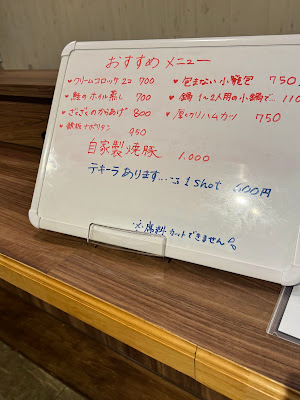 おすすめ メニュー
♥クリームコロッケ 2コ 700 ♥包まない小籠包 750
♥鮭のホイル蒸し 700 ♥鍋 1〜2人用の小鍋で… 110
のからあげ 800 ハムカツ 750
♥鉄板ナポリタン 950
自家製焼豚 1.000
テキーラあります… 1 shot 600円
※席料カットできません。